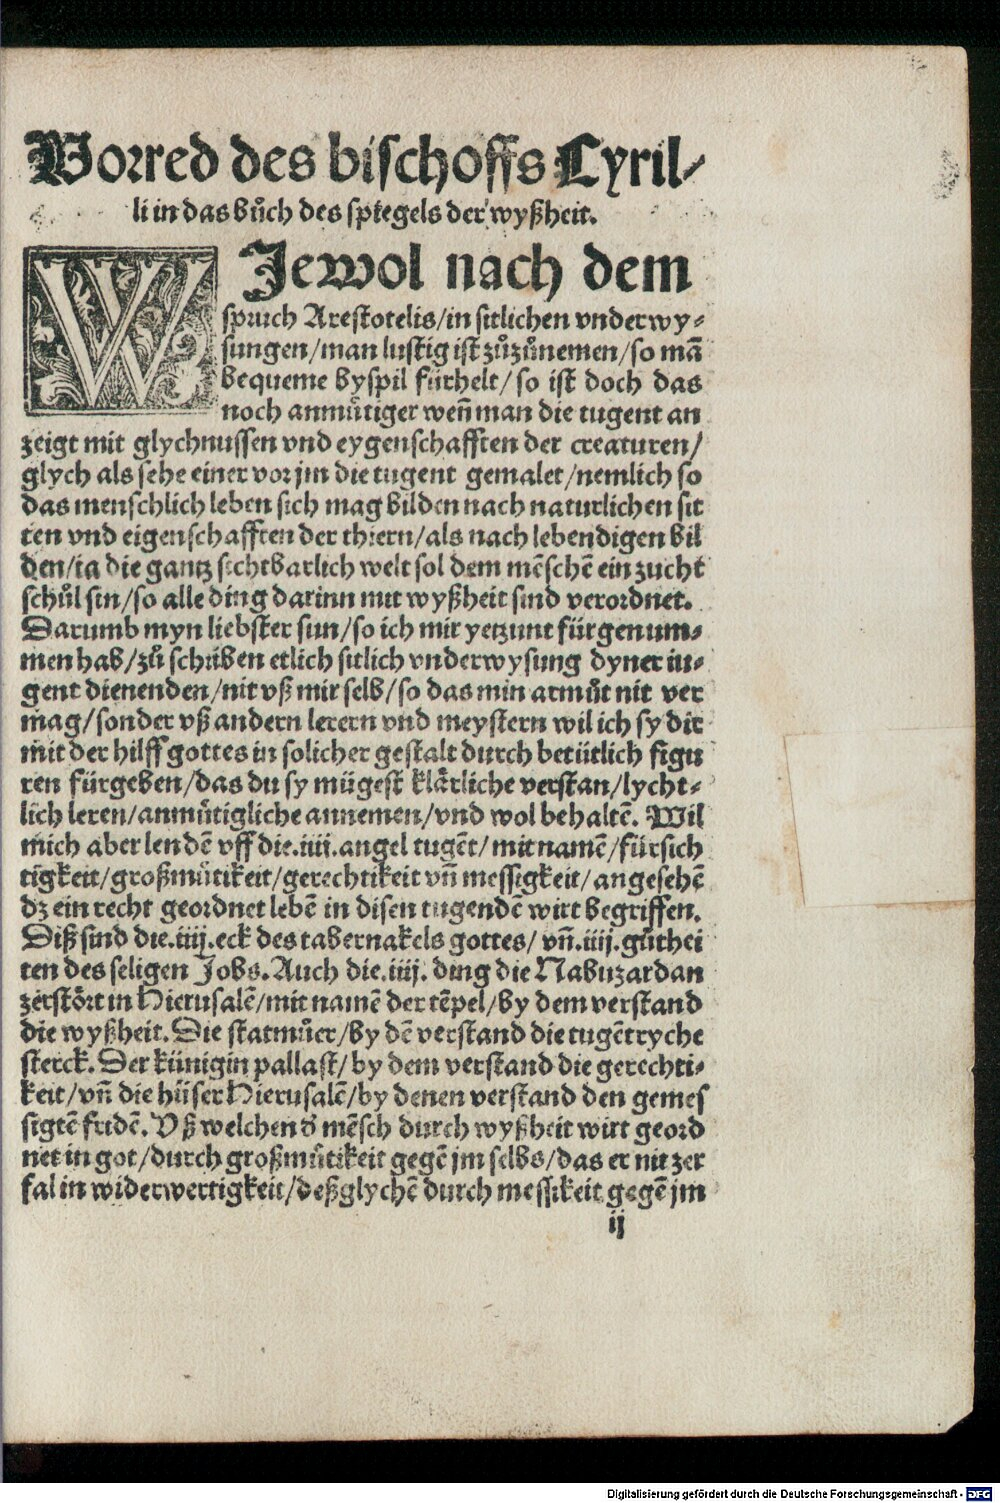 Vorred des bischoffs Cyril⸗
li in das bůch des spiegels der wyßheit.
WJewol nach dem
spruch Arestotelis/in sitlichen vnderwy⸗
sungen/man lustig ist zůzůnemen/so mā
bequeme byspil fürhelt/so ist doch das
noch anmůtiger weñ man die tugent an
zeigt mit glychnussen vnd eygenschafften der creaturen/
glych als sehe einer vor jm die tugent gemalet/nemlich so
das menschlich leben sich mag bilden nach naturlichen sit
ten vnd eigenschafften der thiern/als nach lebendigen bil
den/ia die gantz sichtbarlich welt sol dem mēschē ein zucht
schůl sin/so alle ding darinn mit wyßheit sind verordnet.
Darumb myn liebster sun/so ich mir yetzunt fürgenum⸗
men hab/zů schriben etlich sitlich vnderwysung dyner iu⸗
gent dienenden/nit vß mir selb/so das min armůt nit ver
mag/sonder vß andern lerern vnd meystern wil ich sy dir
mit der hilff gottes in solicher gestalt durch betütlich figu
ren fürgeben/das du sy mügest klärliche verstan/lycht⸗
lich leren/anmůtigliche annemen/vnd wol behaltē. Wil
mich aber lendē vff die.iiii.angel tugēt/mit namē/fürsich
tigkeit/großmůtikeit/gerechtikeit vñ messigkeit/angesehē
dz ein recht geordnet lebē in disen tugendē wirt begriffen.
Diß sind die.iiij.eck des tabernakels gottes/vñ.iiij.gůthei
ten des seligen Jobs. Auch die.iiij.ding die Nabuzardan
zerstört in Hierusalē/mit namē der tēpel/by dem verstand
die wyßheit. Die statmůer/by dē verstand die tugētryche
sterck. Der künigin pallast/by dem verstand die gerechti⸗
keit/vñ die hüser Hierusalē/by denen verstand den gemes
sigtē fridē. Vß welchen d' mēsch durch wyßheit wirt geord
net in got/durch großmůtikeit gegē jm selbs/das er nit zer
fal in widerwertigkeit/deßglychē durch messikeit gegē jm
ij
Digitalisierung gefördert durch die Deutsche Forschungsgemeinschaft - DFG